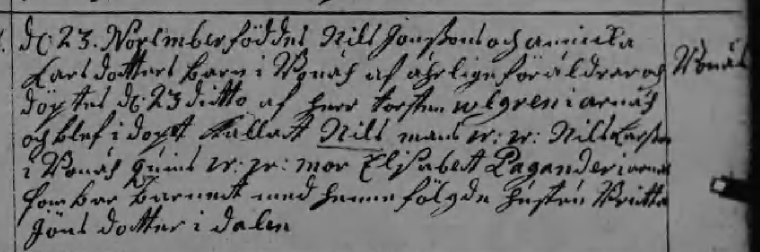 d: 23. November föddes Nils Jonssons och annicka
Larsdotters barn i Wonäs af ährlige föräldrar och
döptes d: 23 ditto af herr torsten wegren i arnäs
och blef i dopet kallat Nils mans w: w: Nils Larsson
i Wonäs quins w: w: mor Elisabett Pagander i arnäs
som bar barnet med henne fölgde hustru Britta
Jöns dotter i dalen